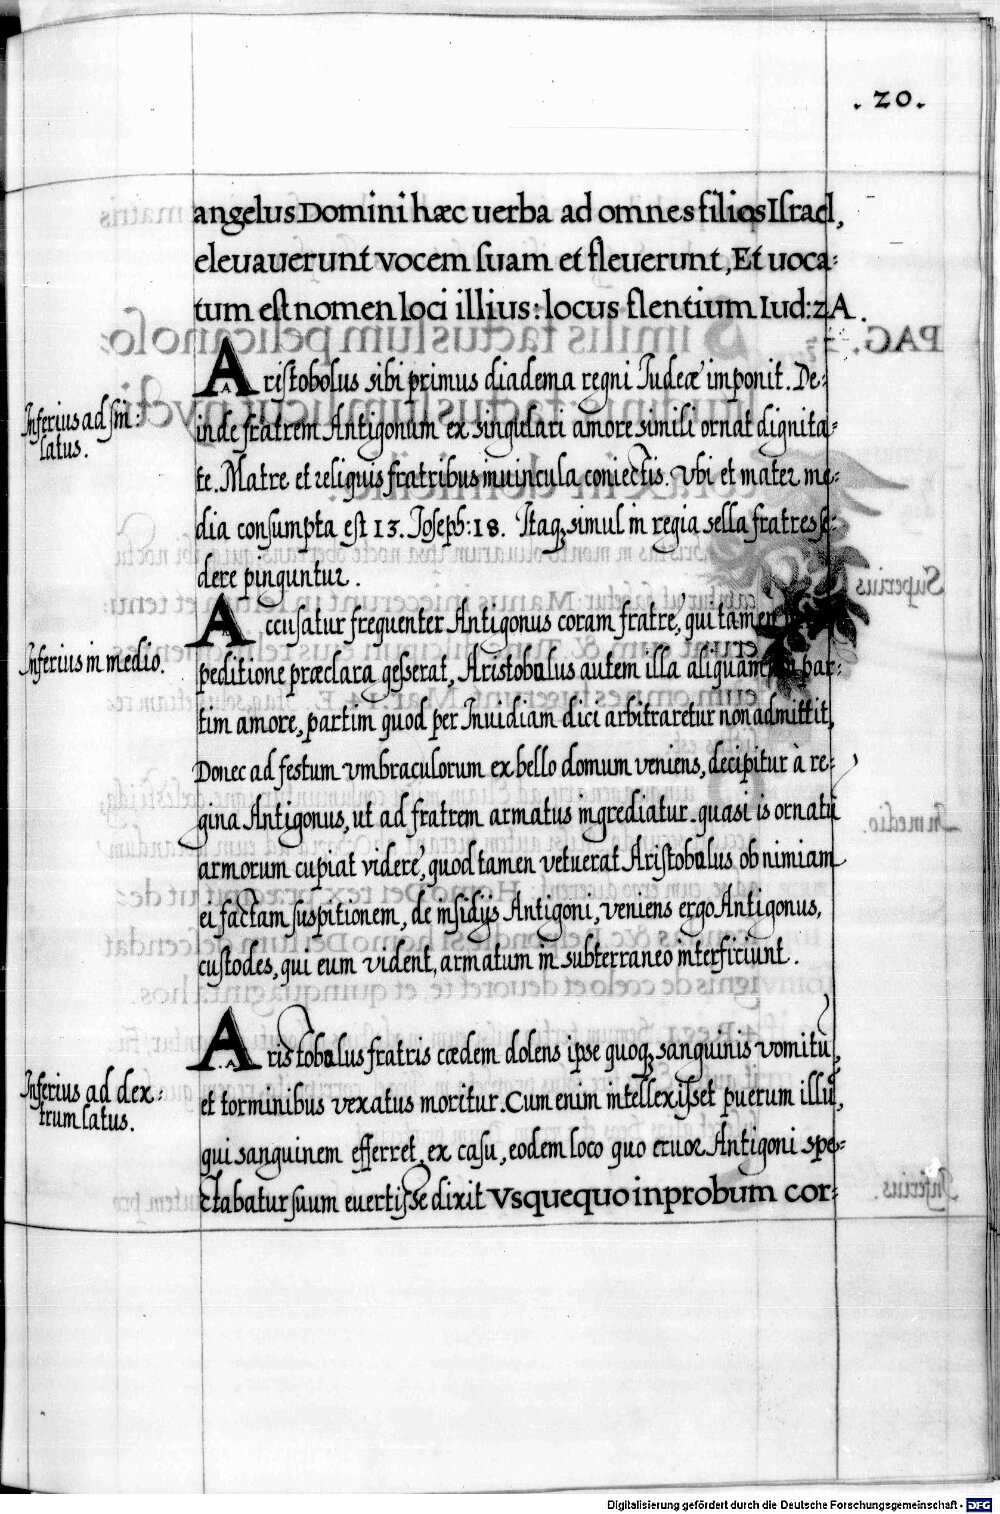 . 20 .
angelus Domini hæc uerba ad omnes filios Iſrael,
eleuauerunt vocem ſuam et fleuerunt, Et uoca:
tum eſt nomen loci illius: locus flentium Iud: 2 A.
Ariſtobolus sibi primus diadema regni Iudeæ imponit. De:
Inferius ad ſini:
latus.
inde fratrem Antigonum ex singulari amore simili ornat dignita:
te. Matre et reliquis fratribus in vincula coniectis. Vbi et mater me:
dia conſumpta eſt 13. Joſeph: 18. Itaq; simul in regia sella fratres ſe:
dere pinguntur.
Accuſatur frequenter Antigonus coram fratre, qui tamen
Inferius in medio.
peditione præclara geſserat, Ariſtobulus autem illa aliquam par:
tim amore, partim quod per Inuidiam dici arbitraretur non admittit,
Donec ad feſtum vmbraculorum ex bello domum veniens, decipitur à re:
gina Antigonus, ut ad fratrem armatus ingrediatur. quasi is ornatū
armorum cupiat videre, quod tamen vetuerat Ariſtobulus ob nimiam
ei factam ſuspitionem, de inſidijs Antigoni, veniens ergo Antigonus,
cuſtodes, qui eum vident, armatum in subterraneo interficiunt.
Ariſtobulus fratris cædem dolens ipse quoq; sanguinis vomitu,
Inferius ad dex:
trum latus.
et torminibus vexatus moritur. Cum enim intellexiſset puerum illū,
qui sanguinem efferret, ex caſu, eodem loco quo cruor Antigoni spe:
ctabatur ſuum euertiſse dixit Vsquequo inprobum cor:
Digitalisierung gefördert durch die Deutsche Forschungsgemeinschaft - DFG